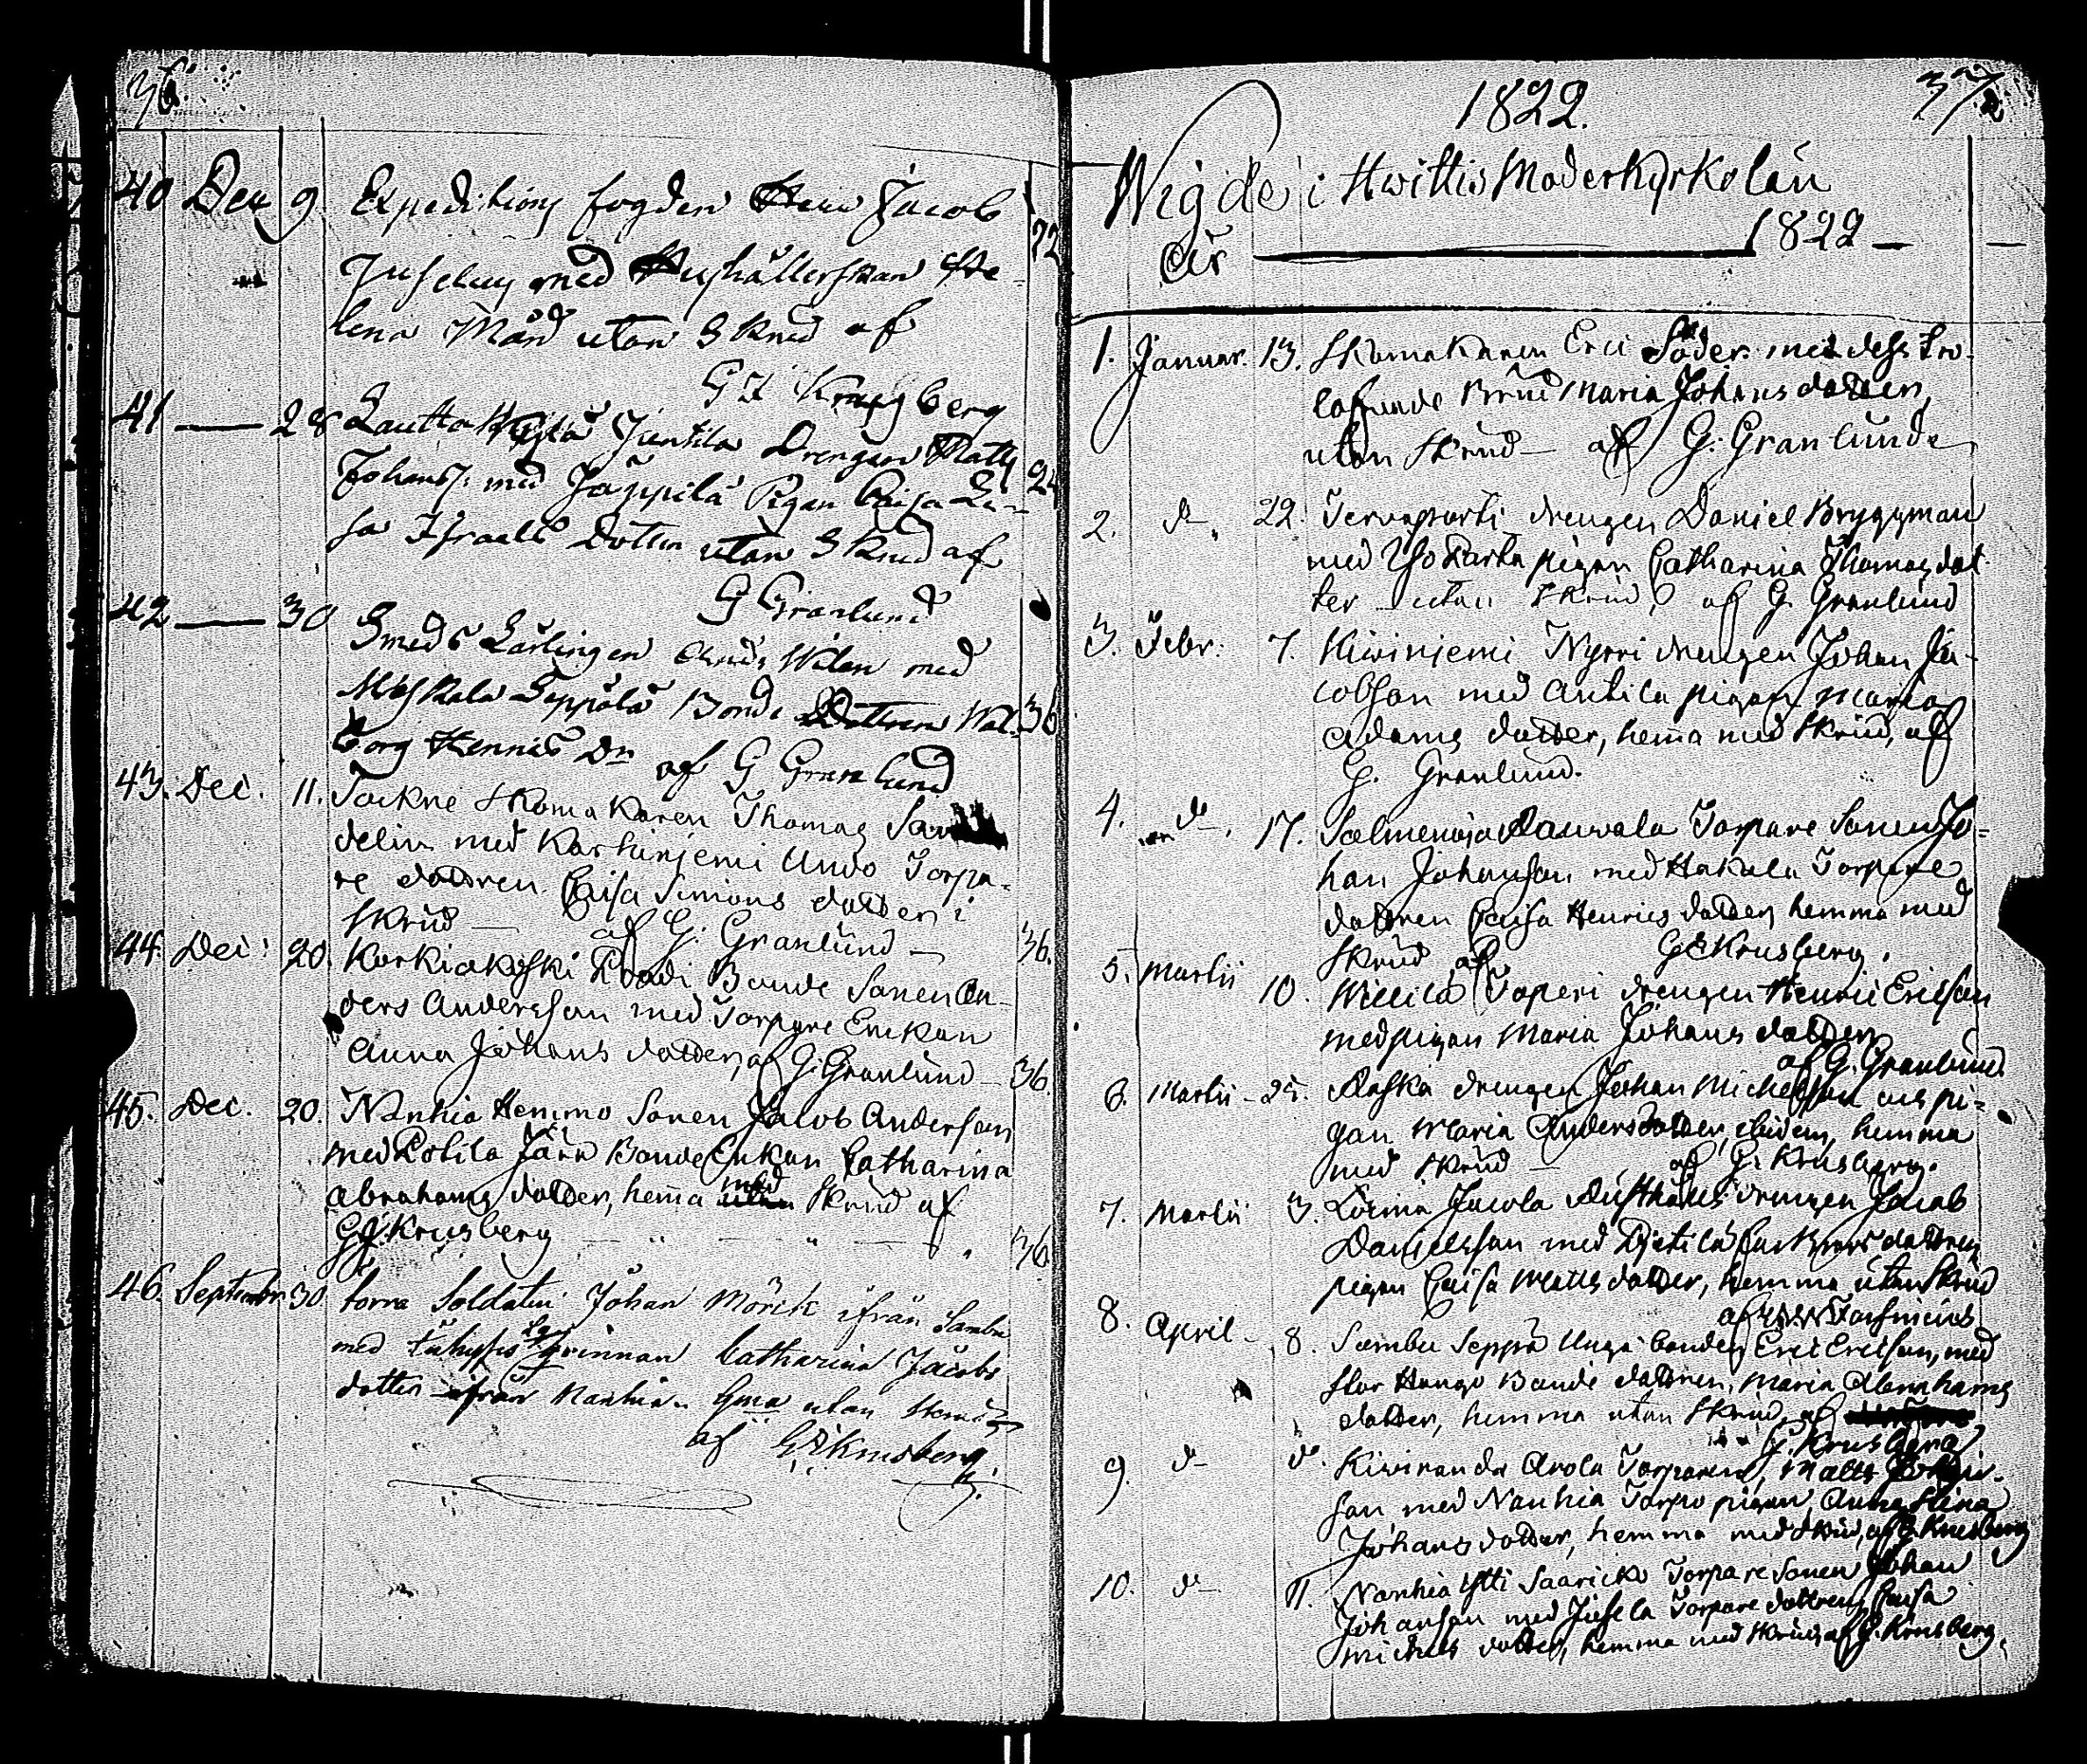 36.
40 Dec 9 Expeditions fogden Herr Jacob
Juselius med Hushållerskan He-
lena Mård utan Skrud af 72
G I Krusberg
41 — 28 Lauttakylä Junttila Drengen Matts
Johanss: med Jäppilä Pigan Caisa Lu- 24
sa Israels Dotter utan Skrud af
G Granlund
42 — 30 Smeds Lärlingen And: Wilen med
Seppälä Bonde Dottren Wal- 36
borg Hennics Dr af G Granlund
43. Dec. 11. Sockne Skomakaren Thomas San
delin med Karhiniemi Uuvo Torpa-
re dottren Caisa Simons dotter i
Skrud — af G: Granlund — 36.
44. Dec: 20. Korkiakoski Bonde Sonen An-
ders Andersson med Torpare Enkan
Anna Johans dotter, af G: Granlund — 36.
45. Dec. 20. Nanhia Hemmo Sonen Jacob Andersson
med Rotila Järw Bonde Enkan Catharina
Abrahams dotter, hema med utan Skrud af
G.J. Krusberg — " — " — . 36
46. September 30 torra Soldaten Johan Mörck ifrån Sambu
med qvinnan Catharina Jacobs
dotter ifrån Nanhia. hema utan Skrud
af G I Krusberg.
37
1822.
Wigde i Hwittis Moderkyrkolän
År 1822 —
1. Januar. 13. Skomakaren Eric Söder med dess tro-
lofwade Brud Maria Johans dotter,
utan Skrud — af G: Granlund
2. do 22. Terwaportti drengen Daniel Bryggman
med pigan Catharina Thomas dot-
ter utan Skrud, af G. Granlund
3. Febr: 7. Kiviniemi Nyrri drengen Johan Ja-
cobsson med Antila pigan Maria
Adams dotter, hema med Skrud, af
G. Granlund.
4. do. 17. Sallmenoja Torpare Sonen Jo-
han Johansson med Hakala Torpare
dottren Caisa Henrics dotter, hemma med
Skrud af G I Krusberg.
5. Martii 10. Willilä Taperi drengen Henric Ericsson
med pigan Maria Johans dotter
af G. Granlund.
6. Martii - 25. drengen Johan Michelsson och pi-
gan Maria Anders dotter, ibidem, hemma
med Skrud — af G. Krusberg.
7. Martii 3. Loima Jacola drengen Jacob
Danielsson med dottren
pigan Caisa Matts dotter, hemma utan Skrud
af Forsmans
8. April - 8. Sambu Seppä Unga bonden Eric Ericsson, med
Stor Hango Bonde dottren, Maria Abrahams
dotter, hemma utan Skrud, af
G. Krusberg.
9. do do. Kiviranda Arola Torparen, Matts Johan-
son med Nanhia Torpo pigan Anna Stina
Johans dotter, hemma med Skrud, af G. Krusberg
10. do 11. Nanhia Ytti Saaricko Torpare Sonen Johan
Johansson med Jusela Torpare dottren Caisa
Michels dotter, hemma med Skrud, af G. Krusberg.